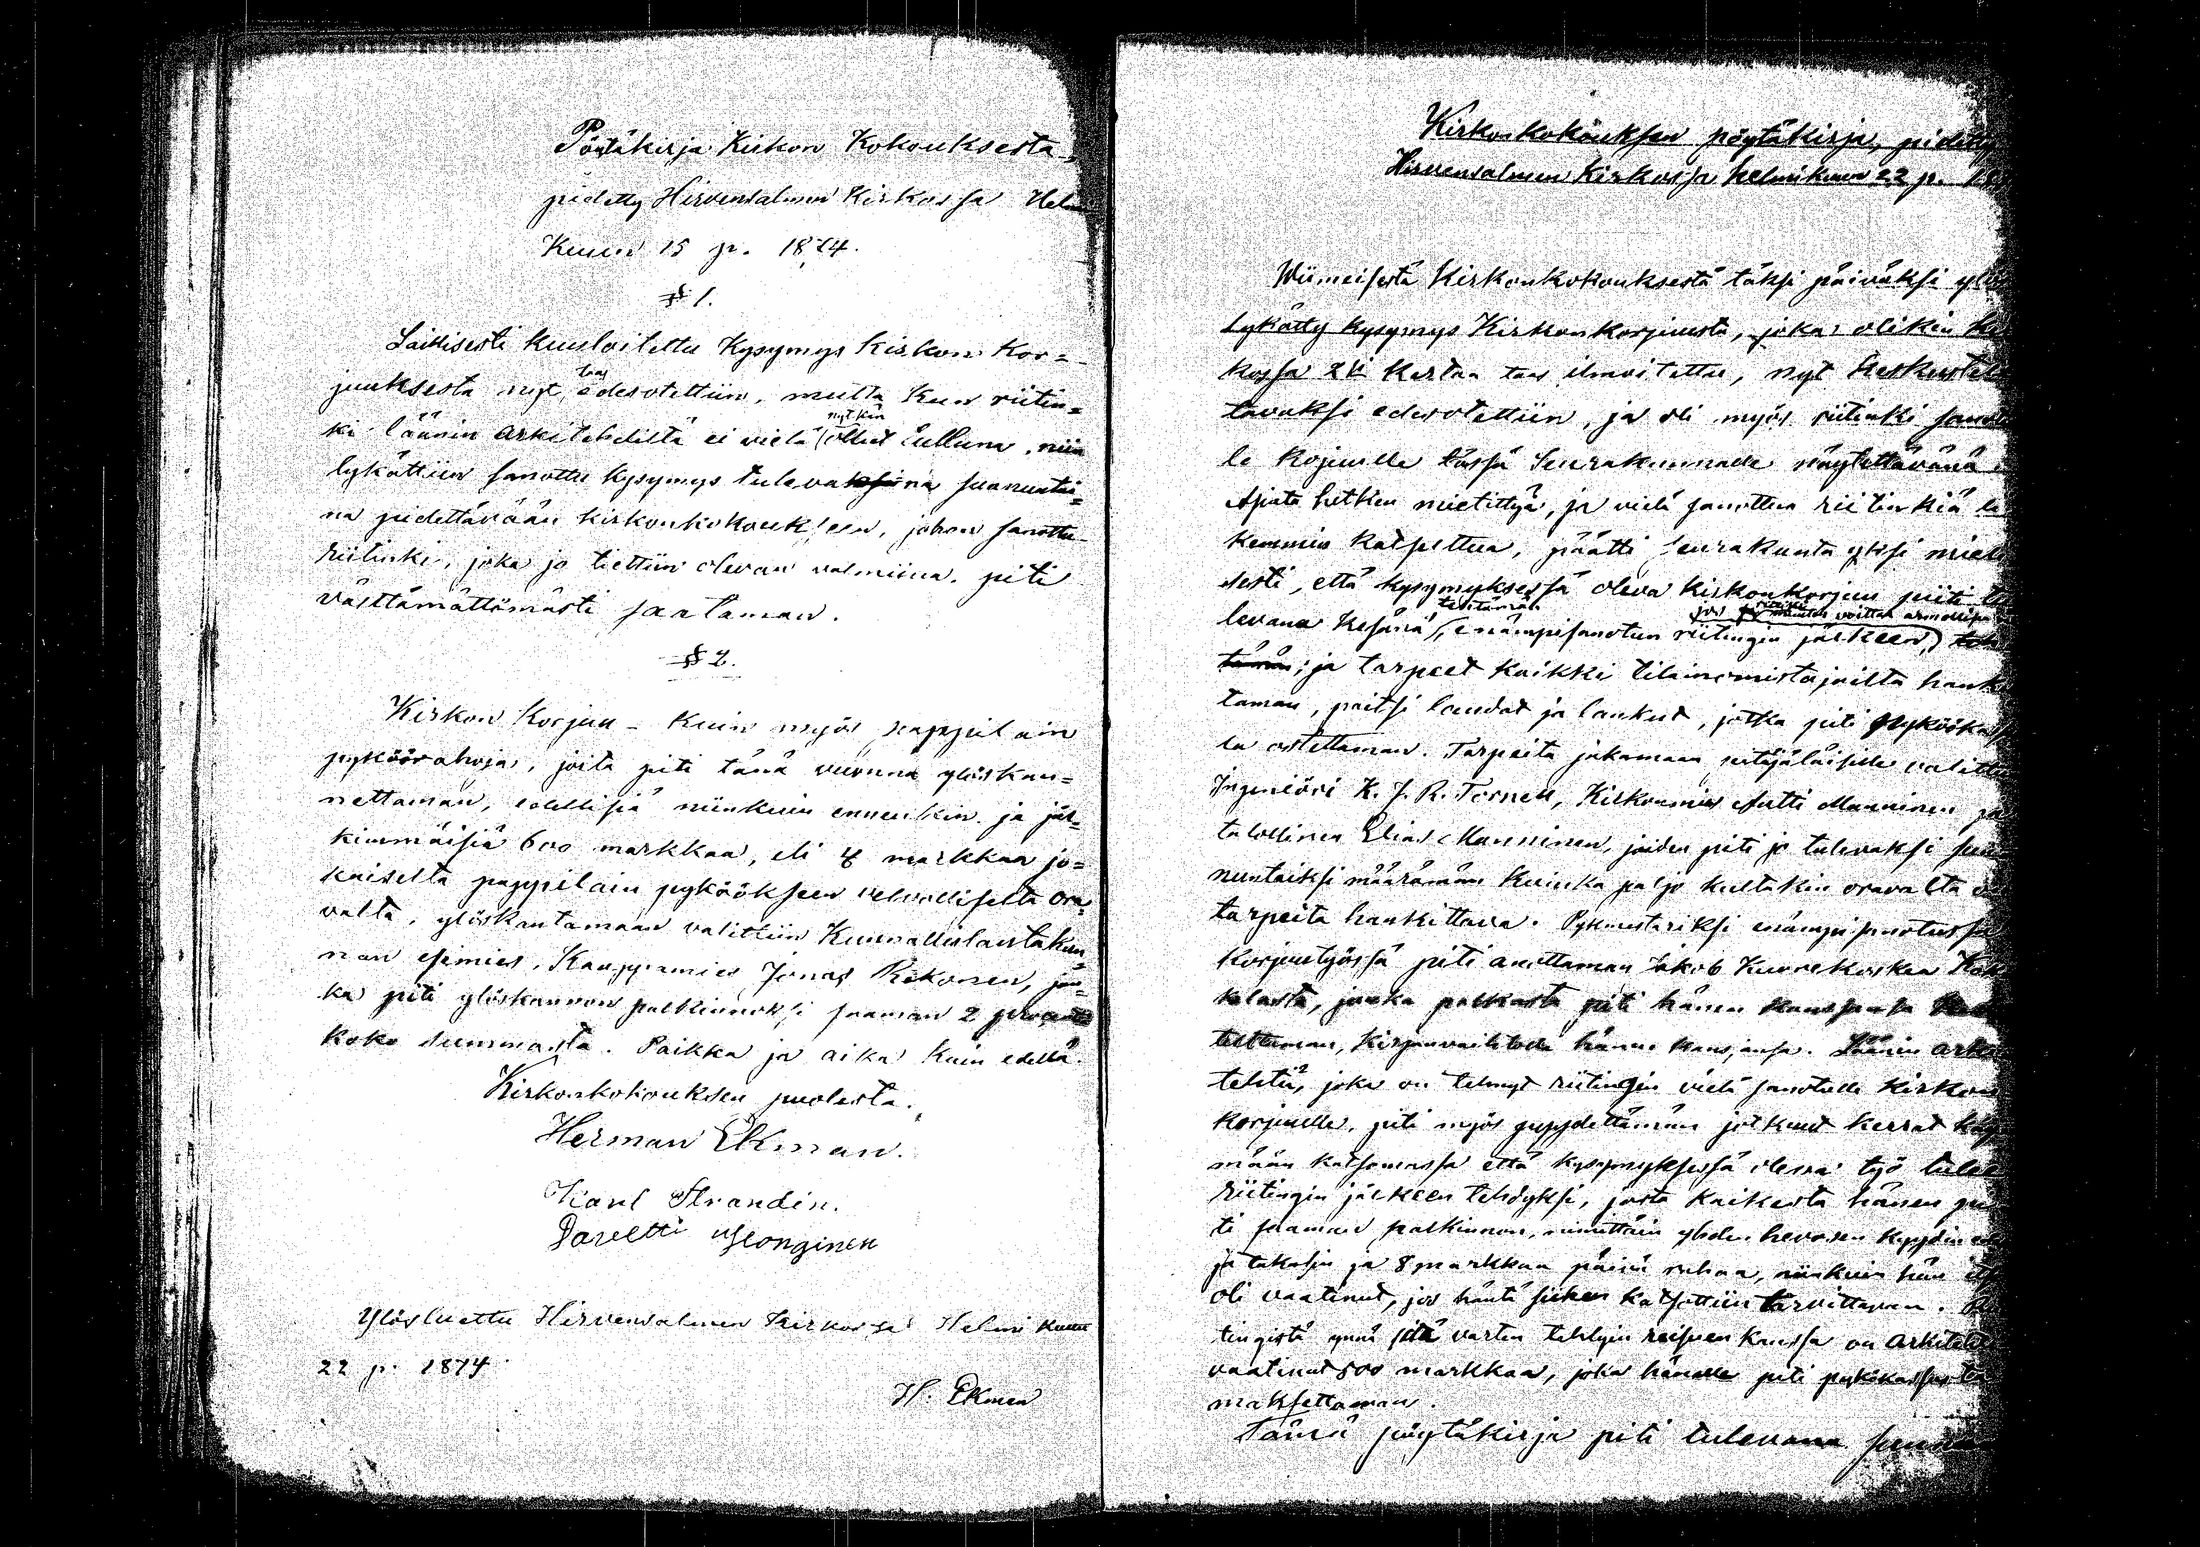 Pöytäkirja Kirkon Kokouksesta,
pidetty Hirvensalmen Kirkossa Helmi
Kuun 15 p. 1874.
§ 1.
Laillisesti kuuloitettu Kysymys kirkon Kor=
juuksesta nyt taas edesotettiin, mutta Kun riitin=
ki läänin arkitehdiltä ei vielä nytkän ollut tullunna, niin
lykättiin sanottu kysymys tulevaksi na sunnuntai=
na pidettävään kirkonkokoukseen, johon sanottu
riitinki, joka jo tiettiin olevan valmiina, piti
välttämättömästi saataman.
§ 2.
Kirkon Korjuu - Kuin myös pappilain
pyköörahoja, joita piti tänä vuonna ylöskan=
nettaman, edellisiä niinkuin ennenkin ja jäl=
kimmäisiä 600 markkaa, eli 4 markkaa jo=
kaiselta pappilain pykäökseen velvolliselta ora=
valta, ylöskantamaan valittiin Kunnallislautakun=
nan esimies, Kauppamies Jonas Pekonen, jon=
ka piti ylöskannon palkinnoksi saaman 2 prosentt
koko summasta. Paikka ja aika kuin edellä.
Kirkonkokouksen puolesta.
Herman Ekman.
Karl Strandén.
Paveltti Monginen
Ylösluettu Hirvensalmen Kirkossa Helmi kuun
22 p. 1874.
H. Ekman
Kirkonkokouksen pöytäkirja, pidetty
Hirvensalmen Kirkossa helmikuun 22 p. 18
Wiimeisestä Kirkonkokouksesta täksi päiväksi ylös
lykätty kysymys Kirkonkorjuusta, joka olikin kir
kossa 2si kertaa taas ilmoitettu, nyt keskustel
tavaksi edesotettiin, ja oli myös riitinki sanotu
le kojuulle tässä Seurakunnalle näytettävänä.
Ajata hetken mietittyä, ja vielä sanottua riitinkiä li
kemmin katseltua, päätti seurakunta yksi mieli
sesti, että kysymyksessä oleva kirkonkorjuu piti tu
levana kesänä tehtämän, enämpisanotun riitingin jälkeen, jos
; ja tarpeet kaikki tilainomistajoilta hank
taman, paitsi laudat ja laukut, jotka piti pykööka
la ostettaman. Tarpeita jakamaan pitäjäläisille valittiin
Ingeniööri K. J. R. Tornell, Kirkonmies Antti Manninen ja
talollinen Elias Manninen, joiden piti jo tulevaksi sun
nuntaiksi määrämän kuinka paljo kultakin oravalta on
tarpeita hankittava. Pykmestariksi enämpi sanotussa
korjuutyössä piti anottaman Jakob Kuorekoskea Kak
kolasta, jonka palkasta piti hänen kanssansa
teltaman, kirjanvaihtolla hänen kanssansa. Läänin arki
tehtiä, joka on tehnyt riitingin vielä sanotulle kirkon
korjuulle, piti myös pyydettämän jotkuut kerrat käy
mään katsomassa että kysymyksessä oleva työ tulee
riitingin jälkeen tehdyksi, josta kaikesta hänen pi
ti saaman palkinnon, nimittäin yhden hevosen kyydin edes
ja takasin ja 8 markkaa päivä rahaa, niinkuin hän itse
oli vaatinut, jos häntä siihen katsottiin tarvittavan. Rii
tingistä ynnä sitä varten tehdyn reissun kanssa on arkitehti
vaatinut 500 markkaa, joka hänelle piti pykökassasta
maksettaman.
Tämä pöytäkirja piti tulevana sunnun